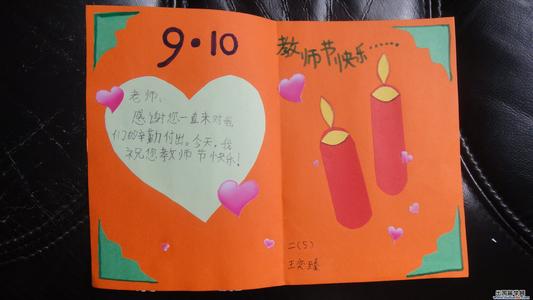 9·10
老师、
感谢您一直来对我
们的辛勤付出。今天，我
祝您教师节快乐！
教师节快乐……
二(5)